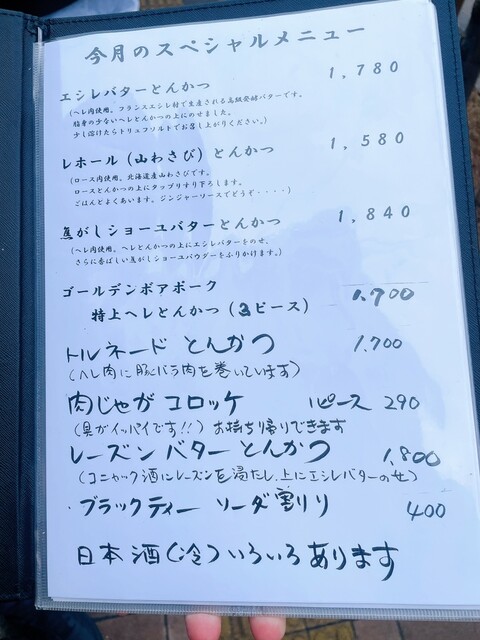 今月のスペシャルメニュー
エシレバターとんかつ 1,780
(ヘレ肉使用。フランスエシレ村で生産される高級発酵バターです。
脂身の少ないヘレとんかつの上にのせました。
少し溶けたらトリュフソルトでお召し上がりください。)
レホール(山わさび)とんかつ 1,580
(ロース肉使用。北海道産山わさびです。
ロースとんかつの上にタップリすり下ろします。
ごはんとよくあいます。ジンジャーソースでどうぞ・・・・)
焦がしショーユバターとんかつ 1,840
(ヘレ肉使用。ヘレとんかつの上にエシレバターをのせ、
さらに香ばしい焦がしショーユパウダーをふりかけます。)
ゴールデンボアポーク
特上ヘレとんかつ(2ピース) 1,700
トルネード とんかつ 1,700
(ヘレ肉に豚バラ肉を巻いています)
肉じゃがコロッケ 1ピース 290
(具がイッパイです!!) お持ち帰りできます
レーズンバターとんかつ 1,800
(コニャック酒にレーズンを浸たし、上にエシレバターのせ)
ブラックティー ソーダ割り 400
日本酒(冷)いろいろあります